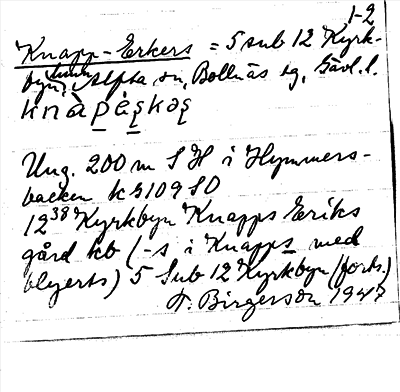 1-2
Knapp-Erkers = 5 sub 12 Kyrk-
byn, Alfta sn, Bollnäs tg, Gävl.l.
knàpèşkəş
Ung. 200 m S H i Hymmers-
backen k 5109 SO
12³⁸ Kyrkbyn Knapps Eriks
gård kb (-s i Knapps med
blyerts) 5 Sub 12 Kyrkbyn (forts.)
F. Birgerson 1947